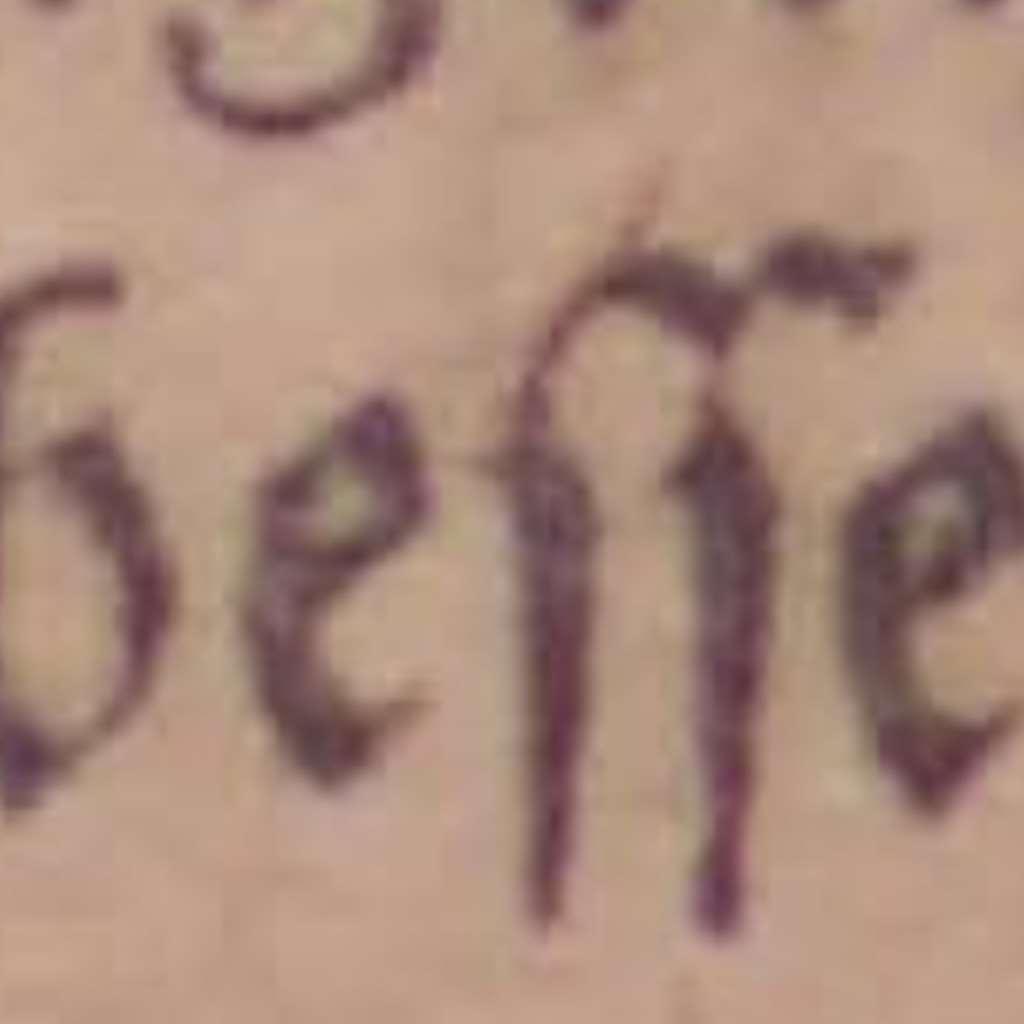 beſſe